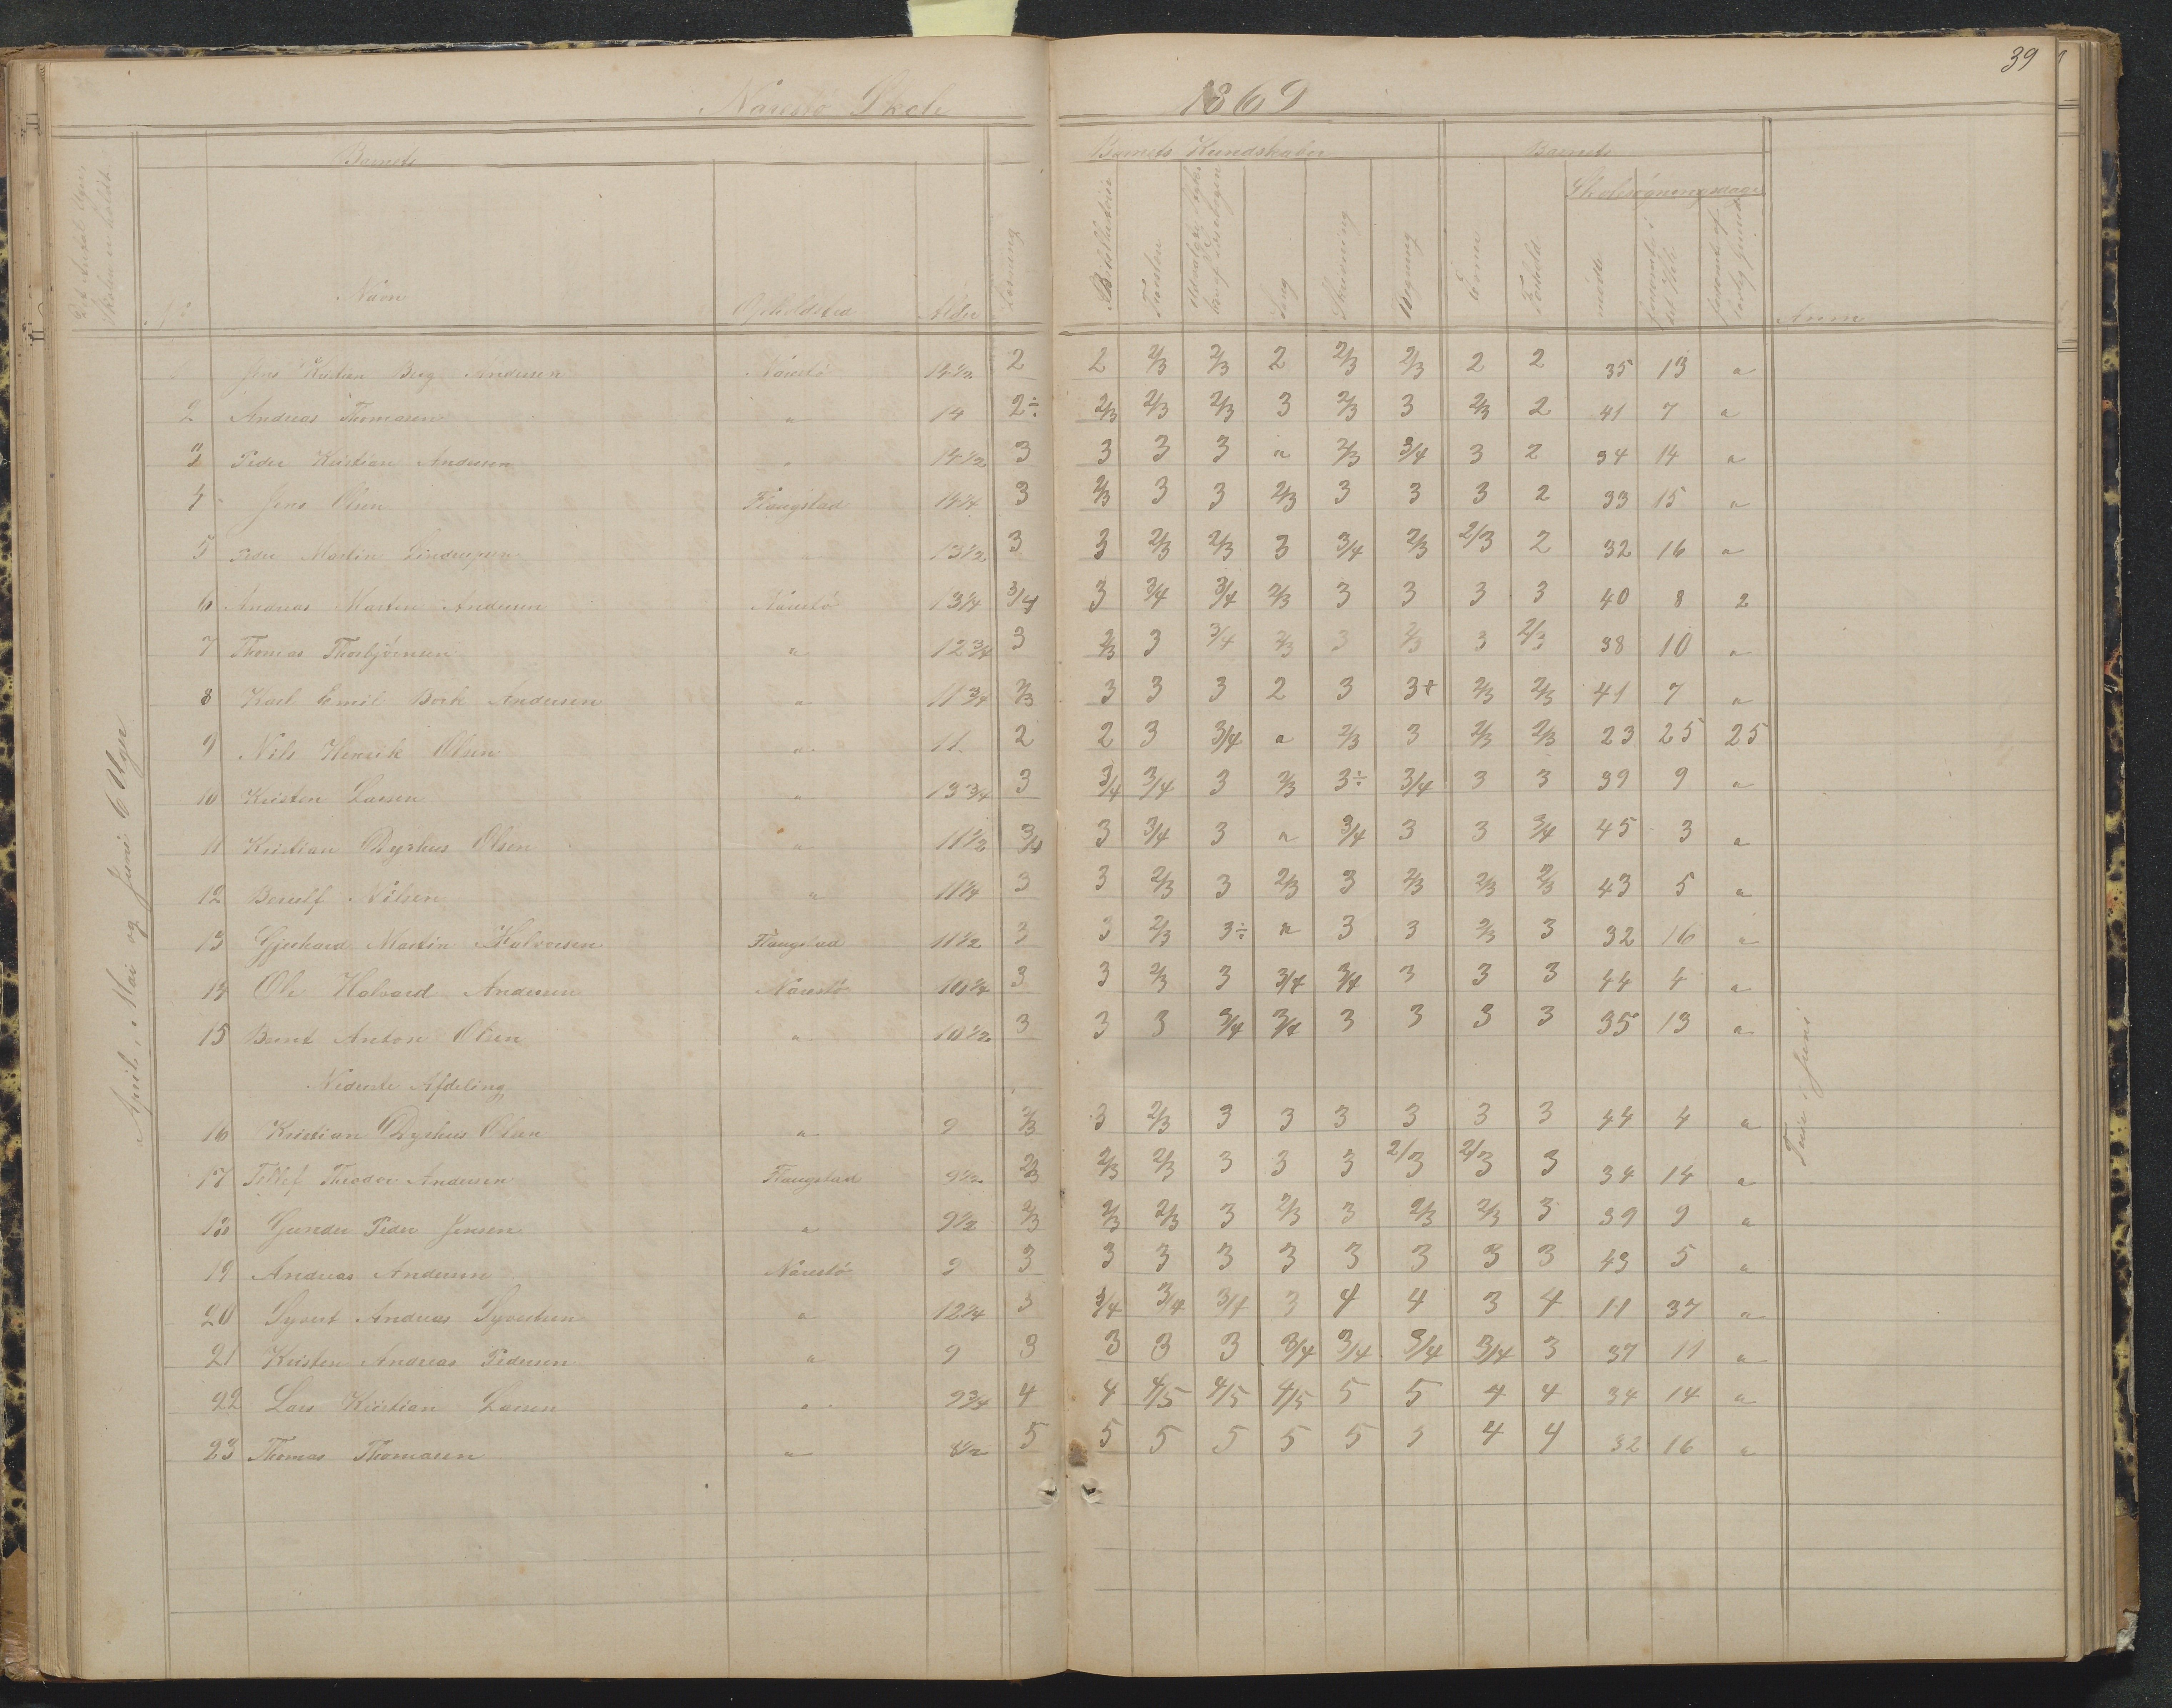 39
Narestø Skole 1869
Det Antal Uger Skolen er holdt
Barnets
Barnets Kundskaber
Barnets
Skolesøgningsdage
No
Navn
Opholdsted
Alder
Læsning
Bibelhistorie
Troslære
Sang
Skrivning
Regning
Evner
Forhold
mødte
forsømte i det Hele
forsømte af lovlig Grund
Anm
April, Mai og Juni 6 Uger
1 Jens Kristian Berg Andersen Narestø 14 1/2 2 2 2/3 2/3 2 2/3 2/3 2 2 35 13 "
2 Andreas Thomasen " 14 2÷ 2/3 2/3 2/3 3 2/3 3 2/3 2 41 7 "
3 Peder Kristian Andersen " 14 1/2 3 3 3 3 " 2/3 3/4 3 2 34 14 "
4 Jens Olsen Flangstad 14 1/4 3 2/3 3 3 2/3 3 3 3 2 33 15 "
5 Peder Martin 13 1/2 3 3 2/3 2/3 3 3/4 2/3 2/3 2 32 16 "
6 Andreas Martin Andersen Narestø 13 1/4 3/4 3 3/4 3/4 2/3 3 3 3 3 40 8 2
7 Thomas Thorbjörnsen " 12 3/4 3 2/3 3 3/4 2/3 3 2/3 3 2/3 38 10 "
8 Karl Emil Bork Andersen " 11 3/4 2/3 3 3 3 2 3 3+ 2/3 2/3 41 7 "
9 Nils Henrik Olsen " 11 2 2 3 3/4 " 2/3 3 2/3 2/3 23 25 25
10 Kristen Larsen " 13 3/4 3 3/4 3/4 3 2/3 3÷ 3/4 3 3 39 9 "
11 Kristian Dyrhus Olsen " 11 1/2 3/4 3 3/4 3 " 3/4 3 3 3/4 45 3 "
12 Berulf Nilsen " 11 1/4 3 3 2/3 3 2/3 3 2/3 2/3 2/3 43 5 "
13 Gjerhard Martin Halvorsen Flangstad 11 1/2 3 3 2/3 3÷ " 3 3 2/3 3 32 16 "
14 Ole Halvard Andersen Narestø 10 1/4 3 3 2/3 3 3/4 3/4 3 3 3 44 4 "
15 Bernt Anton Olsen " 10 1/2 3 3 3 3/4 3/4 3 3 3 3 35 13 "
Nederste Afdeling
16 Kristian Dyrhus Olsen " 9 2/3 3 2/3 3 3 3 3 3 3 44 4 "
17 Tellef Theodor Andersen Flangstad 9 1/2 2/3 2/3 2/3 3 3 3 2/3 2/3 3 34 14 "
18 Gunder Peder Jensen " 9 1/2 2/3 2/3 2/3 3 2/3 3 2/3 2/3 3 39 9 "
19 Andreas Andersen Narestø 9 3 3 3 3 3 3 3 3 3 43 5 "
20 Syvert Andreas Syvertsen " 12 1/4 3 3/4 3/4 3/4 3 4 4 3 4 11 37 "
21 Kristen Andreas Pedersen " 9 3 3 3 3 3/4 3/4 3/4 3/4 3 37 11 "
22 Lars Kristian Larsen " 9 3/4 4 4 4/5 4/5 4/5 5 5 4 4 34 14 "
23 Thomas Thomasen " 8 1/2 5 5 5 5 5 5 5 4 4 32 16 "
Juni